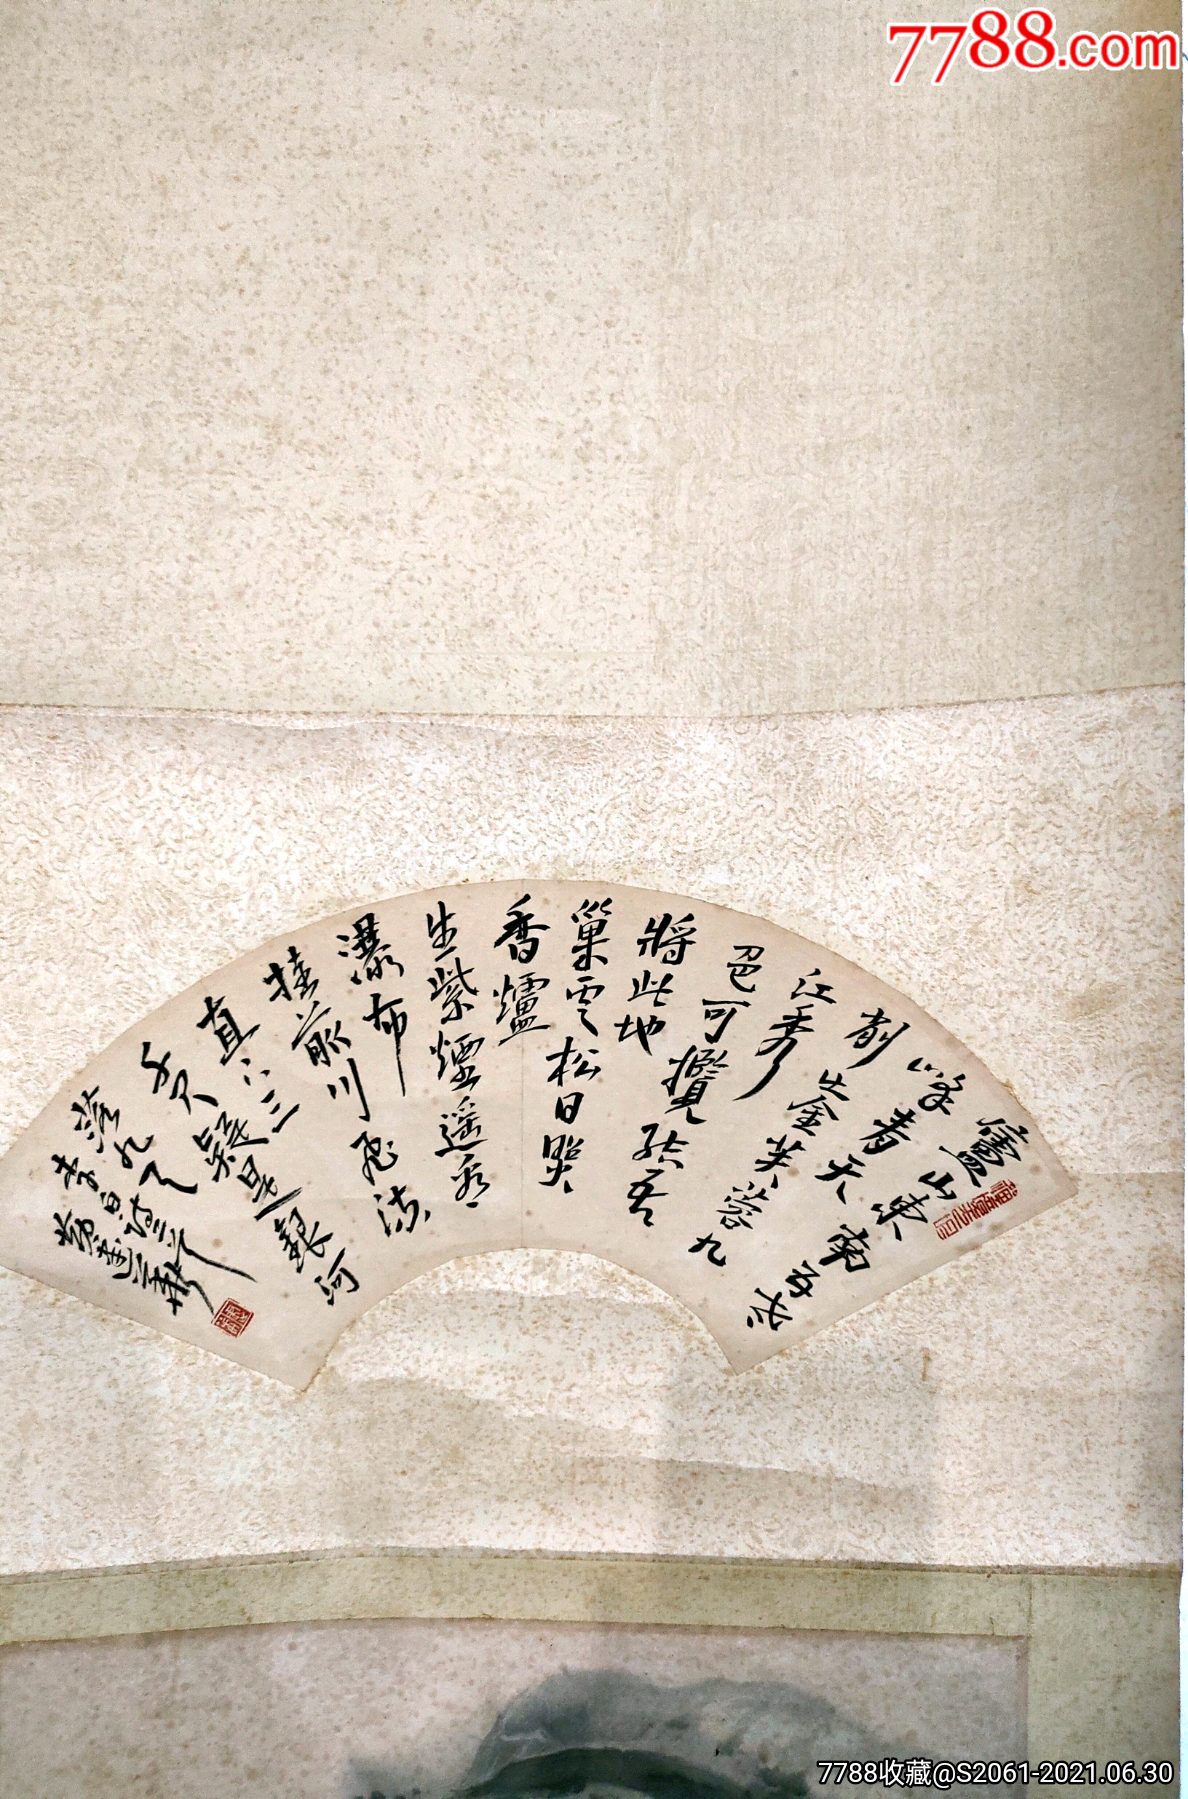 7788.com
廬山東南五老
峰青天
削出金芙蓉九
江秀
色可攬結吾
將此地
巢雲松日照
香爐
生紫煙遥看
瀑布
挂前川飛流
直下三
千尺疑是銀河
落九天
李白詩二首
7788收藏@S2061-2021.06.30